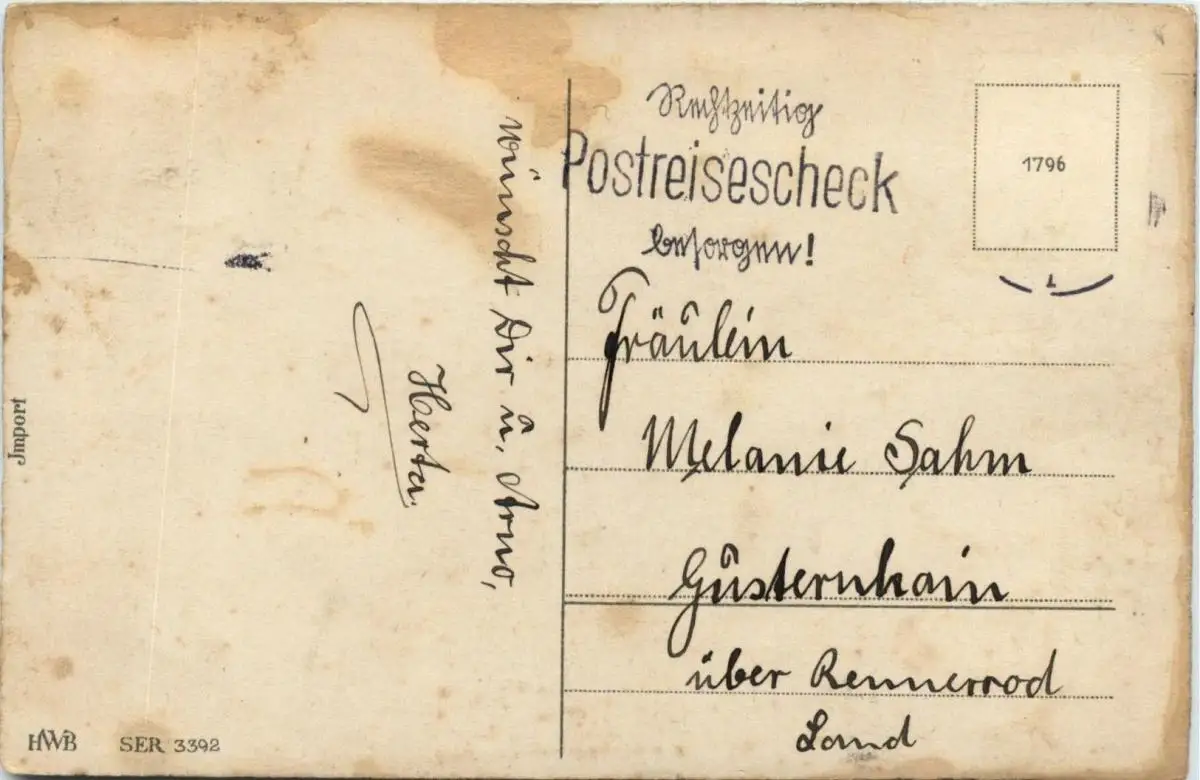 wünscht Dir u. Arno,
Herta.
Rechtzeitig
Postreisescheck
besorgen!
1796
Fräulein
Melanie Sahm
Gusternhain
über Rennerrod
Land
Import
HWB SER 3392